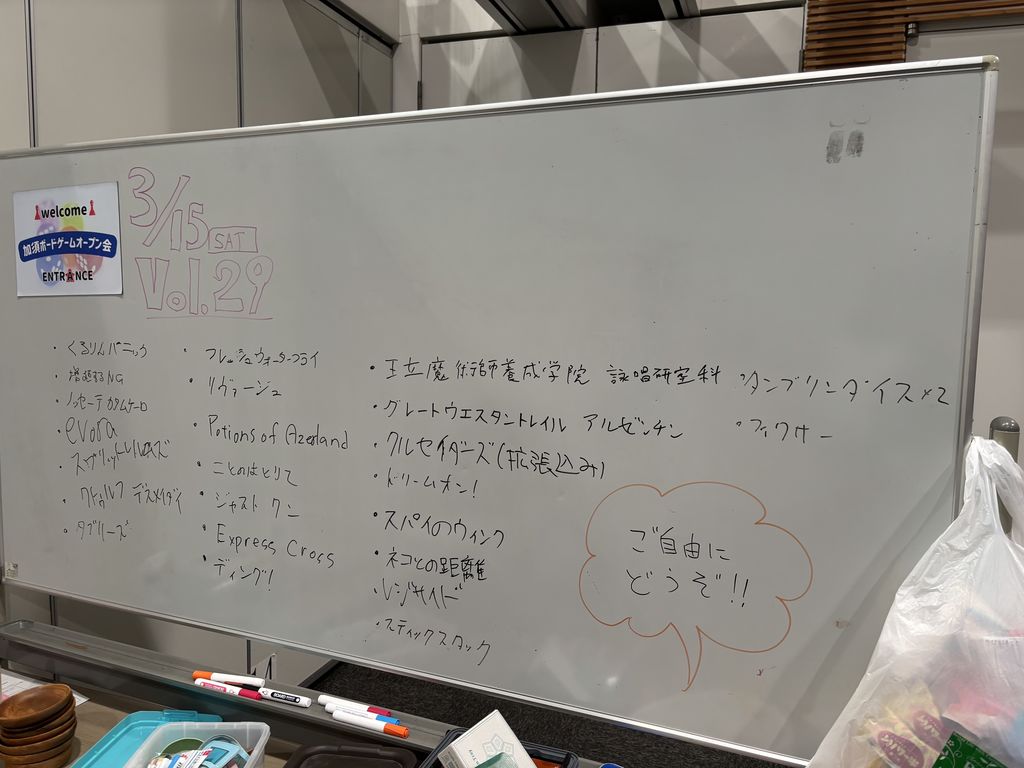 welcome
加須ボードゲームオープン会
ENTRANCE
3/15 SAT
Vol.29
・くるりんパニック
・増速するNG
・ノッセーテカタムケーロ
evora
・スプリットレルムズ
・クトゥルフ デスメイダイ
・タブリーズ
・フレッシュウォーターフライ
・リヴァージュ
・Potions of Azerland
・ことのはとりて
・ジャスト ワン
・Express Cross
・ディング!
・王立魔術師養成学院 詠唱研究科
・グレートウエスタントレイル アルゼンチン
・クルセイダーズ(拡張込み)
・ドリームオン!
・スパイのウィンク
・ネコとの距離
・レジサイド
・スティックスタック
・タンブリンダイス×2
・フィクサー
ご自由に
どうぞ!!